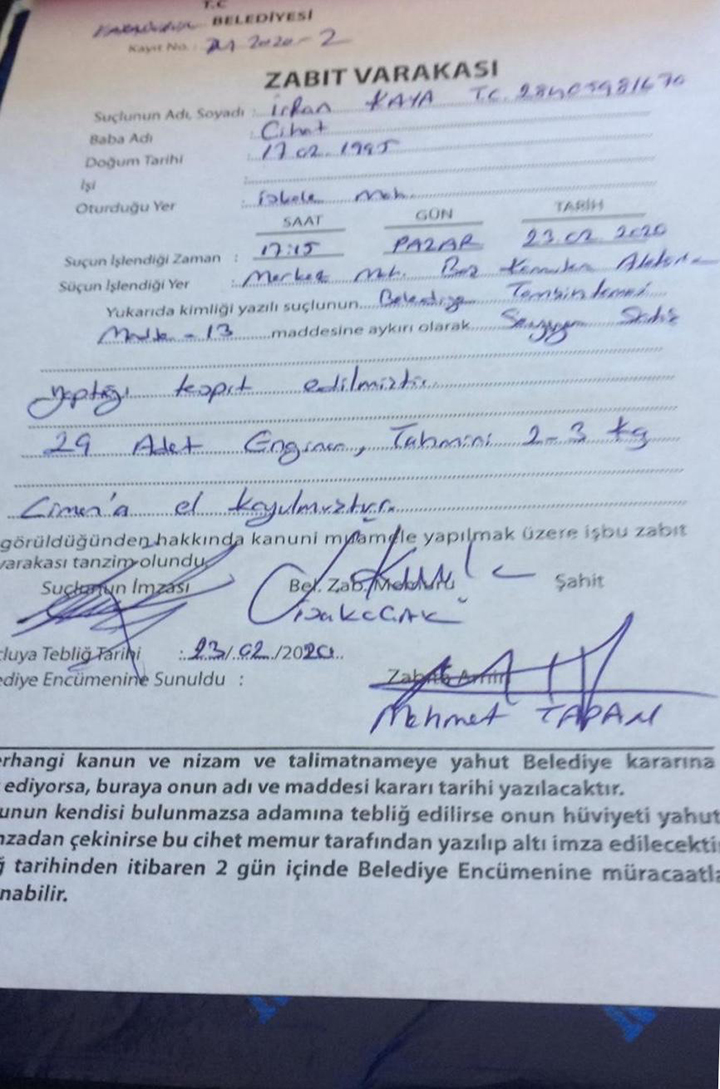 T.C
BELEDİYESİ
Kayıt No. : 2020-2
ZABIT VARAKASI
Suçlunun Adı, Soyadı : İrfan KAYA T.C. 28405981670
Baba Adı : Cihat
Doğum Tarihi : 17.02.1995
İşi :
Oturduğu Yer : İskele Mah.
SAAT GÜN TARİH
Suçun İşlendiği Zaman : 17:15 PAZAR 23.02.2020
Süçun İşlendiği Yer : Merkez Mah.
Yukarıda kimliği yazılı suçlunun Belediye
Madde - 13 maddesine aykırı olarak Seyyar Satış
yaptığı tespit edilmiştir.
29 Adet Enginar, Tahmini 2-3 kg
Çimen'a el koyulmuştur.
görüldüğünden hakkında kanuni muamele yapılmak üzere işbu zabıt
varakası tanzim olundu.
Suçlunun İmzası Bel. Zab. Memuru Şahit
cluya Tebliğ Tarihi : 23/02/2020
ediye Encümenine Sunuldu :
Zabıta Amiri
Mehmet TAPAN
erhangi kanun ve nizam ve talimatnameye yahut Belediye kararına
ediyorsa, buraya onun adı ve maddesi kararı tarihi yazılacaktır.
unun kendisi bulunmazsa adamına tebliğ edilirse onun hüviyeti yahut
nzadan çekinirse bu cihet memur tarafından yazılıp altı imza edilecekti
ğ tarihinden itibaren 2 gün içinde Belediye Encümenine müracaatla
nabilir.